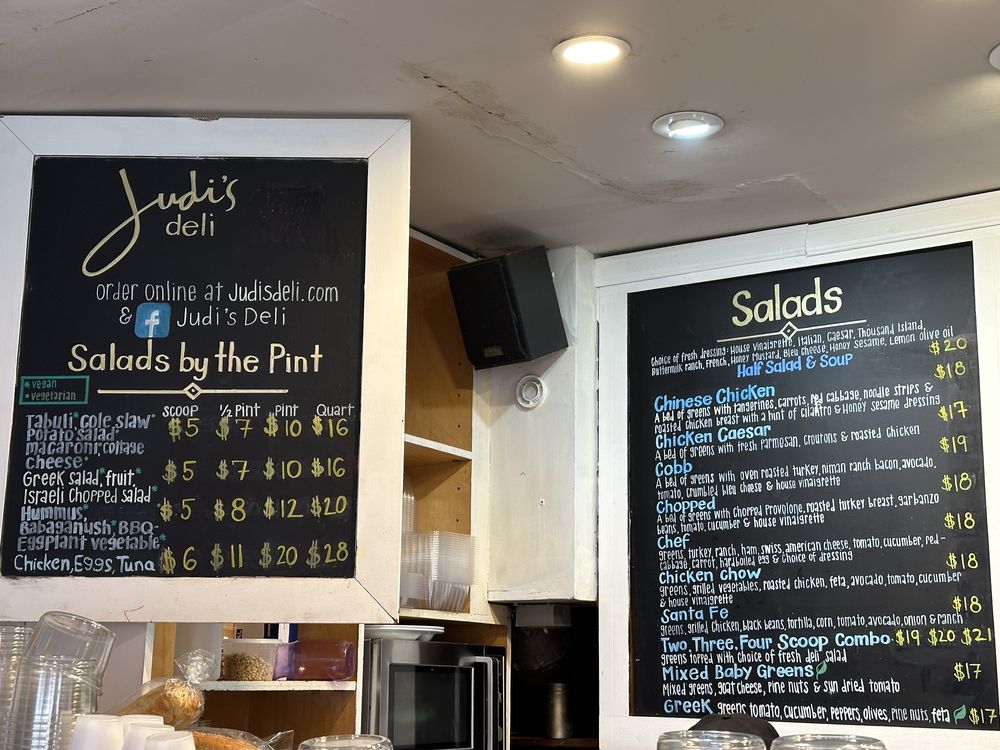 Judi's
deli
order online at Judisdeli.com
& f Judi's Deli
Salads by the Pint
*vegan
*vegetarian
scoop ½ Pint Pint Quart
Tabuli* Cole slaw* $5 $7 $10 $16
Potato salad*
macaroni, cottage
Cheese* $5 $7 $10 $16
Greek salad, fruit,*
Israeli Chopped salad*
Hummus* $5 $8 $12 $20
Babaganush* BBQ-
Eggplant vegetable*
Chicken, Eggs, Tuna $6 $11 $20 $28
Salads
Choice of fresh dressing: House Vinaigrette, Italian, Caesar, Thousand Island,
Buttermilk ranch, French, Honey Mustard, Bleu Cheese, Honey Sesame, Lemon olive oil
Half Salad & Soup $20
Chinese Chicken $18
A bed of greens with tangerines, carrots, red cabbage, noodle strips &
roasted chicken breast with a hint of cilantro & Honey sesame dressing
Chicken Caesar $17
A bed of greens with fresh parmesan, croutons & roasted chicken
Cobb $19
A bed of greens with oven roasted turkey, niman ranch bacon, avocado,
tomato, crumbled bleu cheese & house vinaigrette
Chopped $18
A bed of greens with chopped Provolone, roasted turkey breast, garbanzo
beans, tomato, cucumber & house vinaigrette
Chef $18
greens, turkey, ranch, ham, swiss, american cheese, tomato, cucumber, red-
cabbage, carrot, hardboiled egg & choice of dressing
Chicken Chow $18
greens, grilled vegetables, roasted chicken, feta, avocado, tomato, cucumber
& house vinaigrette
Santa Fe $18
greens, grilled Chicken, black beans, tortilla, corn, tomato, avocado, onion & ranch
Two, Three, Four Scoop Combo. $19 $20 $21
greens topped with choice of fresh deli salad
Mixed Baby Greens $17
Mixed greens, goat cheese, pine nuts & sun dried tomato
Greek greens, tomato, cucumber, peppers, olives, pine nuts, feta $17